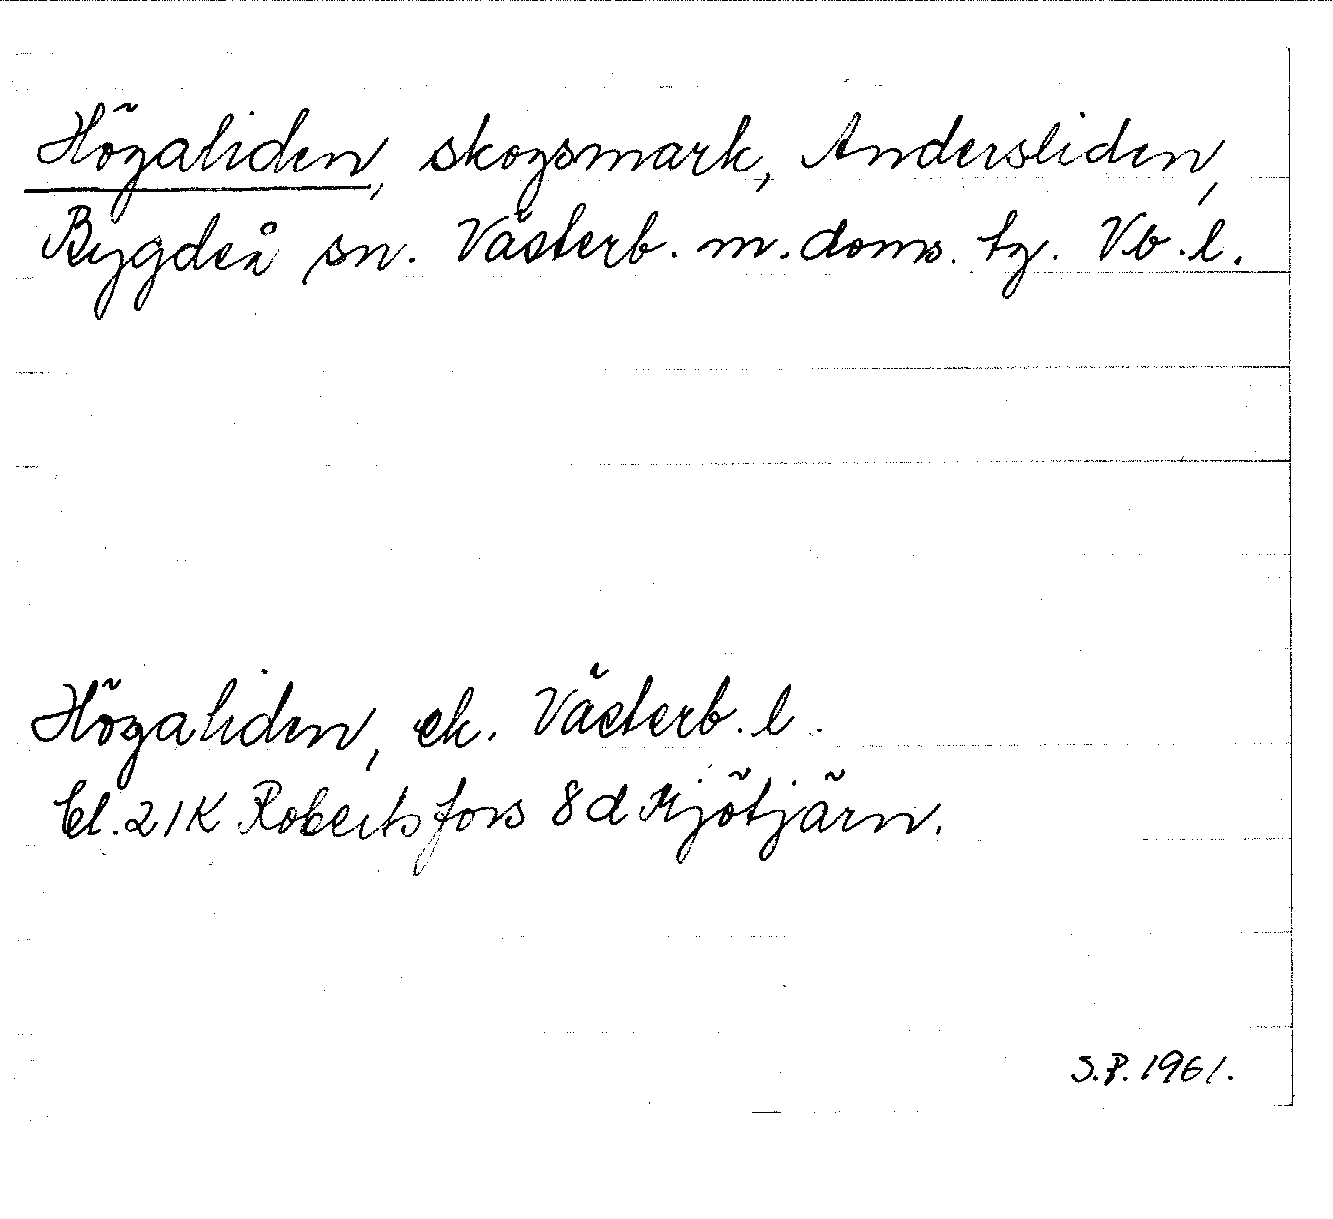 Högaliden, skogsmark, Andersliden,
Bygdeå sn. Västerb. m. doms. tg. Vb. l.
Högaliden, ek. Västerb. l.
Bl. 21K Robertsfors 8d Mjötjärn.
S.P. 1961.